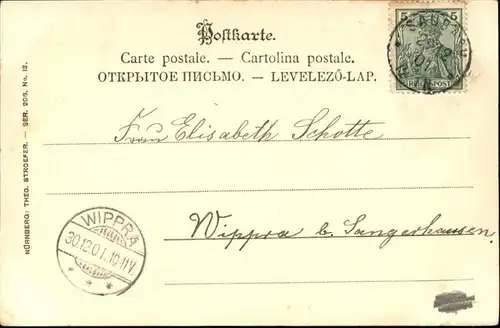 Postkarte.
Carte postale. — Cartolina postale.
ОТКРЫТОЕ ПИСЬМО. — LEVELEZŐ-LAP.
5 5
REICHSPOST
Frau Elisabeth Schotte
Wippra b. Sangerhausen.
WIPPRA
30.12.01. 10-11V.
NÜRNBERG: THEO. STROEFER. — SER. 206, No. 12.